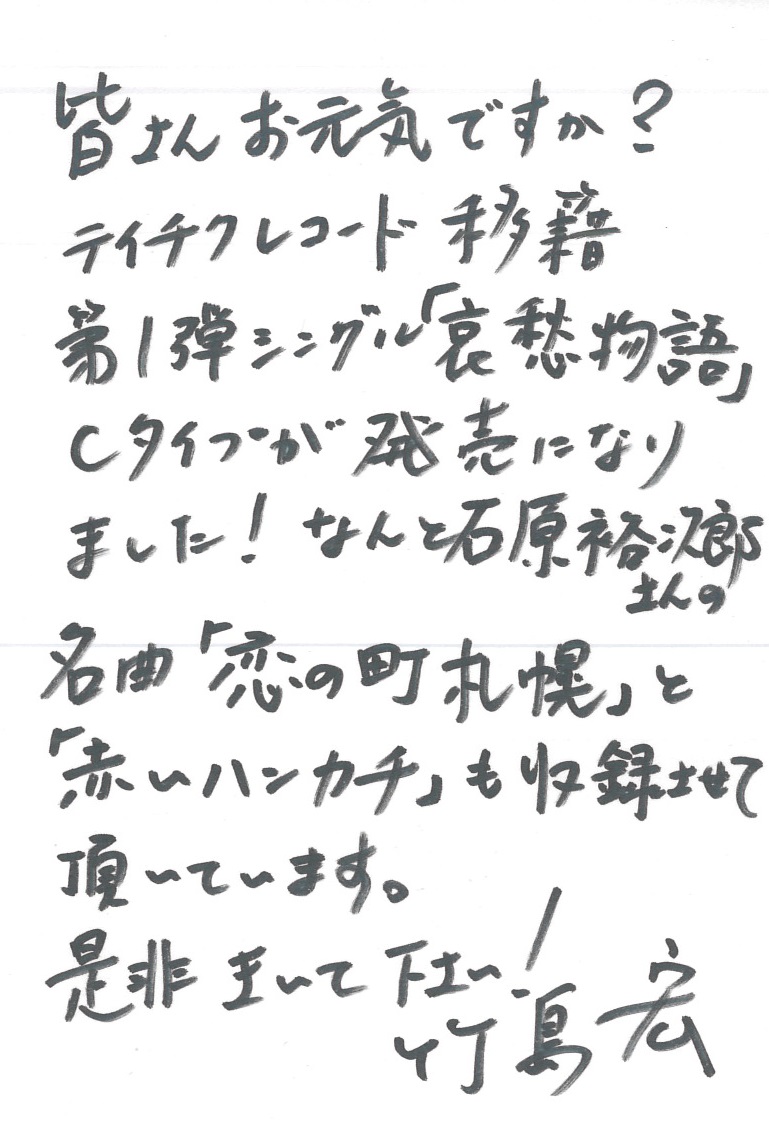 皆さんお元気ですか?
テイチクレコード移籍
第1弾シングル「哀愁物語」
Cタイプが発売になり
ました! なんと石原裕次郎
さんの
名曲「恋の町札幌」と
「赤いハンカチ」も収録させて
頂いています。
是非きいて下さい!
竹島宏